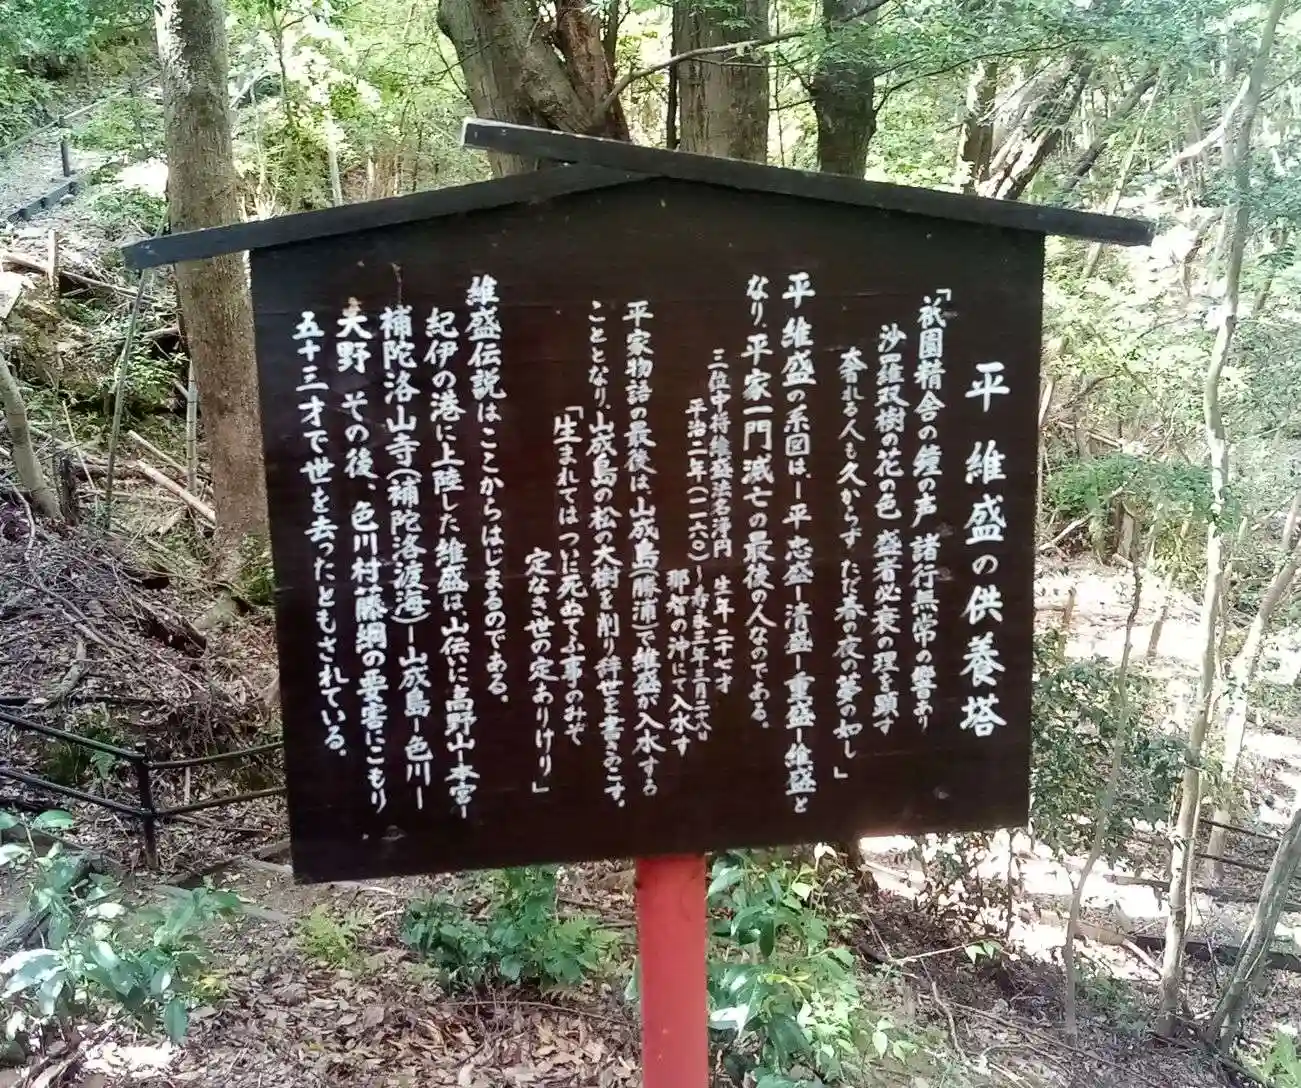 平 維盛の供養塔
「祇園精舎の鐘の声 諸行無常の響あり
沙羅双樹の花の色 盛者必衰の理を顕す
奢れる人も久からず ただ春の夜の夢の如し」
平維盛の系図は、ー平 忠盛ー清盛ー重盛ー維盛と
なり、平家一門滅亡の最後の人なのである。
三位中将維盛法名浄円 生年二十七才
平治二年(一一六〇)〜寿永三年三月二八日
那智の沖にて入水す
平家物語の最後は、山成島(勝浦)で維盛が入水する
こととなり、山成島の松の大樹を削り辞世を書きのこす。
「生まれてはついに死ぬてふ事のみぞ
定なき世の定ありけり」
維盛伝説はここからはじまるのである。
紀伊の港に上陸した維盛は、山伝いに高野山ー本宮ー
補陀洛山寺(補陀洛渡海)ー山成島ー色川ー
大野 その後、色川村藤綱の要害にこもり
五十三才で世を去ったともされている。